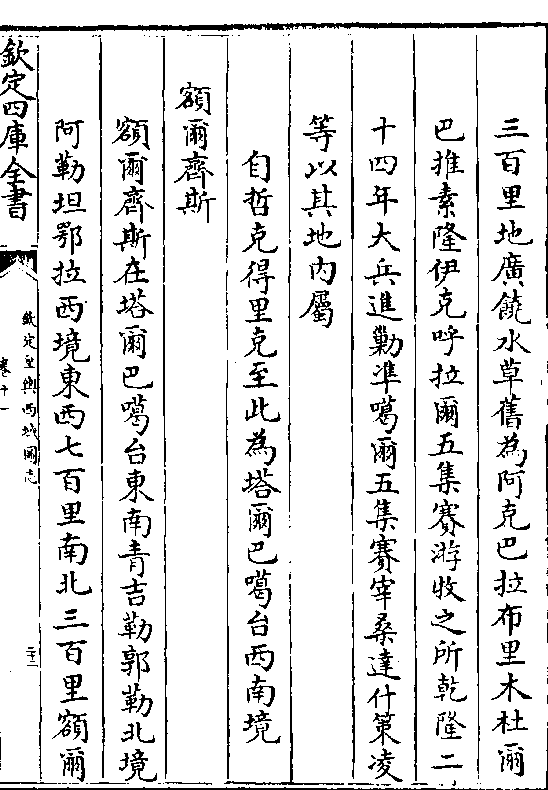 三百里地廣饒水草舊為阿克巴拉布里木杜爾
巴推素隆伊克呼拉爾五集賽游牧之所乾隆二
十四年大兵進勦凖噶爾五集賽宰桑達什策凌
等以其地内屬
自哲克得里克至此為塔爾巴噶台西南境
額爾齊斯
額爾齊斯在塔爾巴噶台東南青吉勒郭勒北境
阿勒坦鄂拉西境東西七百里南北三百里額爾
欽定四庫全書
欽定皇輿西域圖志
卷十一
二十三